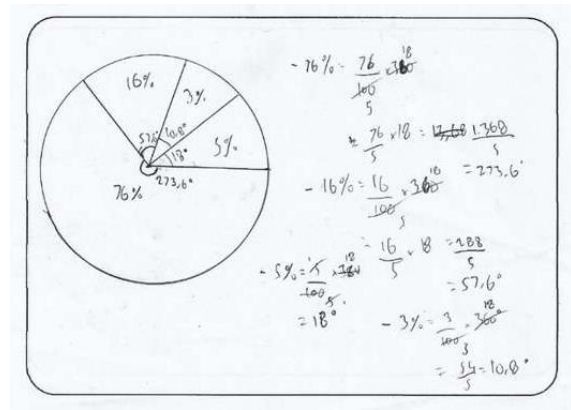 16%
3%
5%
76%
57,6°
10,8°
18°
273,6°
- 76% = 76/100 × 360 18
5
= 76/5 × 18 = 1.368/5
= 273,6°
- 16% = 16/100 × 360 18
5
= 16/5 × 18 = 288/5
= 57,6°
- 5% = 5/100 × 360 18
5
= 18°
- 3% = 3/100 × 360° 18
5
= 54/5 = 10,8°